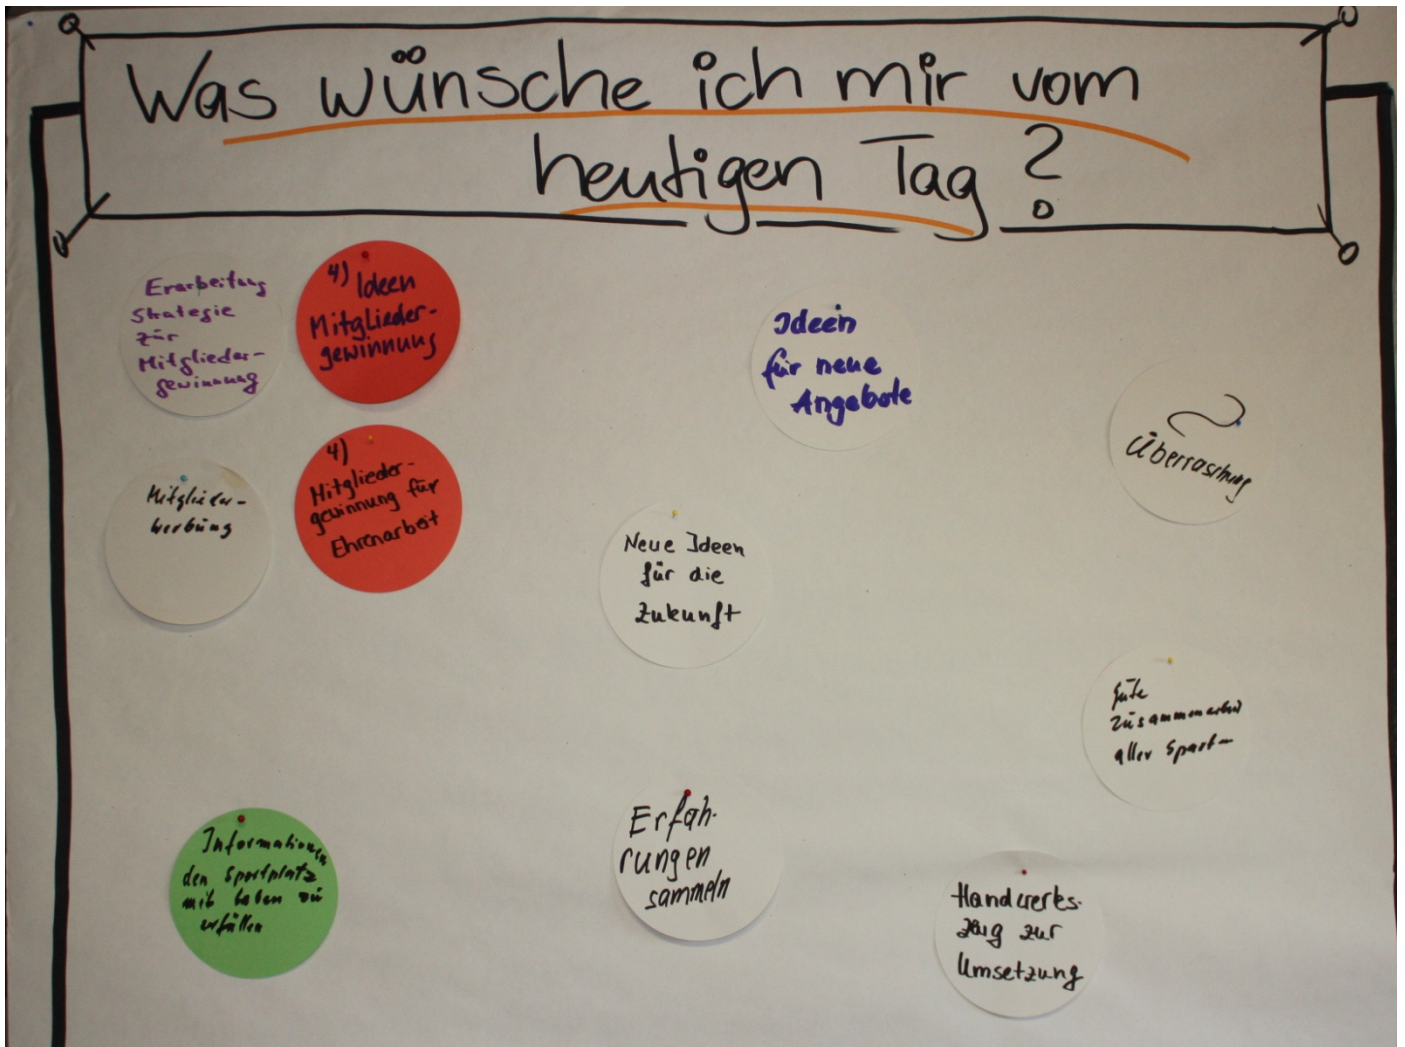 Was wünsche ich mir vom
heutigen Tag?
Erarbeitung
Strategie
zur
Mitglieder-
gewinnung
4) Ideen
Mitglieder-
gewinnung
Ideen
für neue
Angebote
Überraschung
Mitglieder-
werbung
4)
Mitglieder-
gewinnung für
Ehrenarbeit
Neue Ideen
für die
Zukunft
Gute
Zusammenarbeit
aller Sparten
Informationen
den Sportplatz
mit Leben zu
erfüllen
Erfah-
rungen
sammeln
Handwerks-
zeug zur
Umsetzung